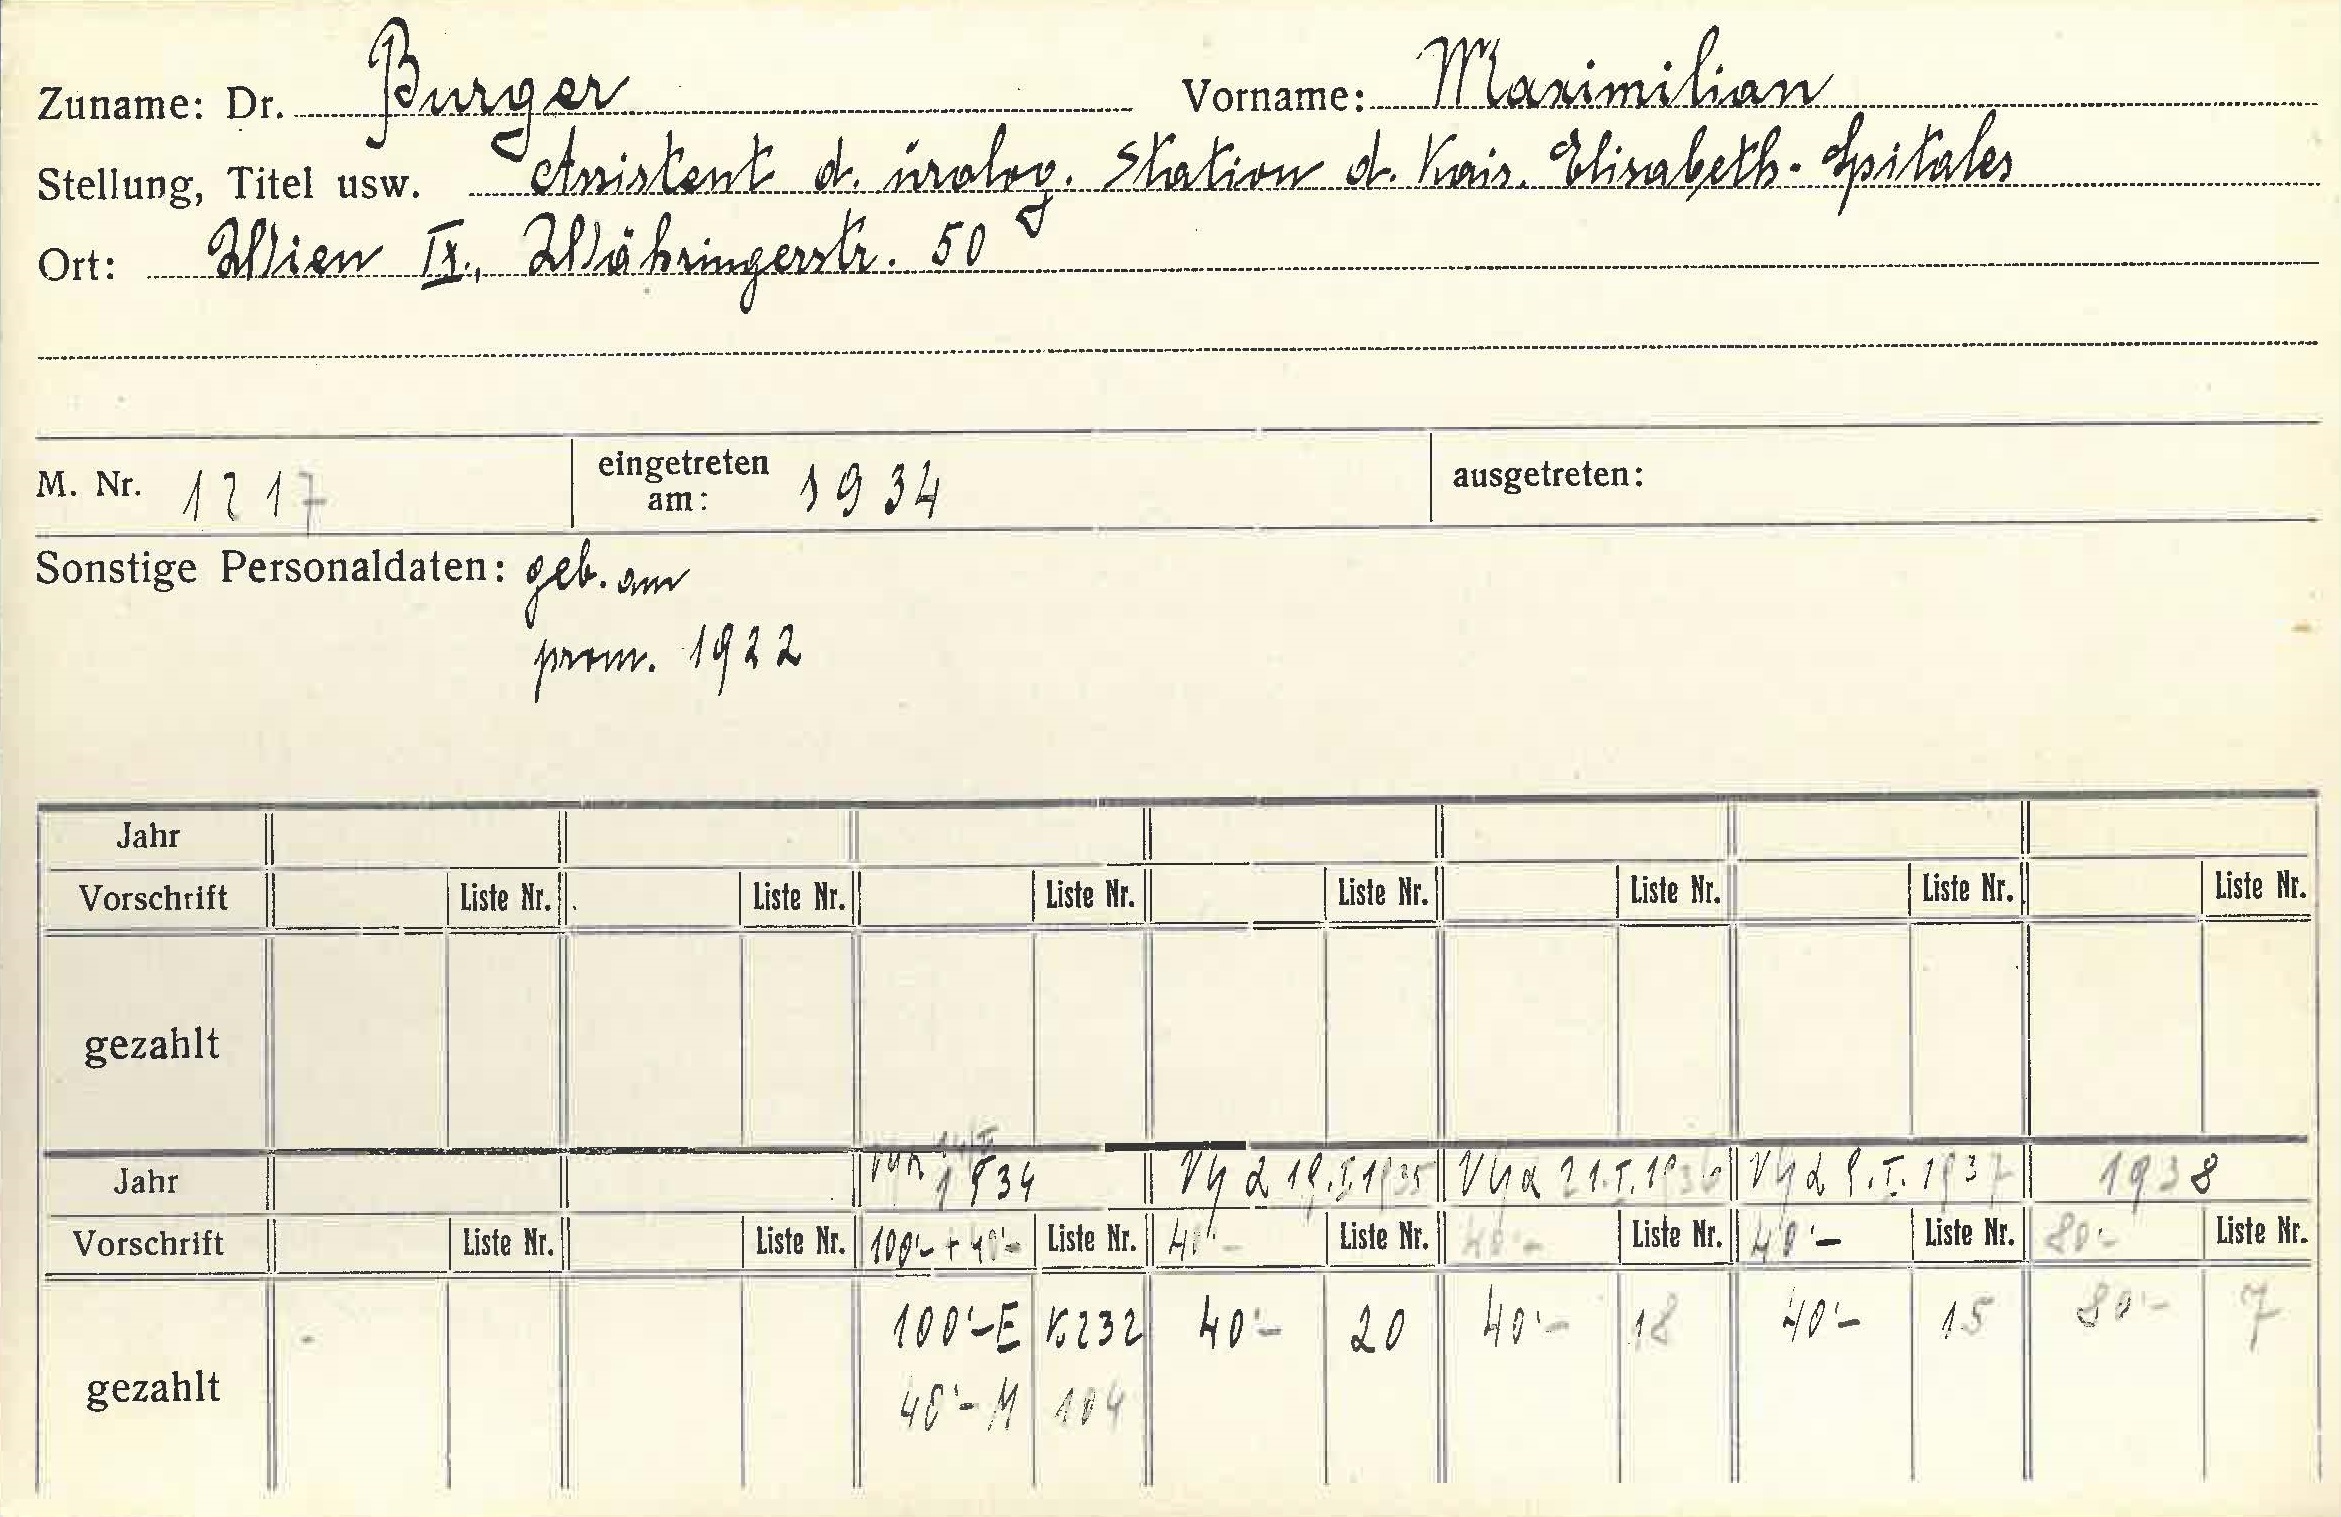 Zuname: Dr. Burger Vorname: Maximilian
Stellung, Titel usw. Assistent d. urolog. Station d. Kais. Elisabeth-Spitales
Ort: Wien IX., Währingerstr. 50
M. Nr. 1217 eingetreten am: 1934 ausgetreten:
Sonstige Personaldaten: geb. am
prom. 1922
Jahr
Vorschrift Liste Nr. Liste Nr. Liste Nr. Liste Nr. Liste Nr. Liste Nr. Liste Nr.
gezahlt
Jahr 1934 19.I.1935 21.I.1936 9.I.1937 1938
Vorschrift Liste Nr. Liste Nr. 100'- + 40'- Liste Nr. 40'- Liste Nr. 40'- Liste Nr. 40'- Liste Nr. 80'- Liste Nr.
100'- E K232 40'- 20 40'- 18 40'- 15 80'- 7
gezahlt 40'- M 104